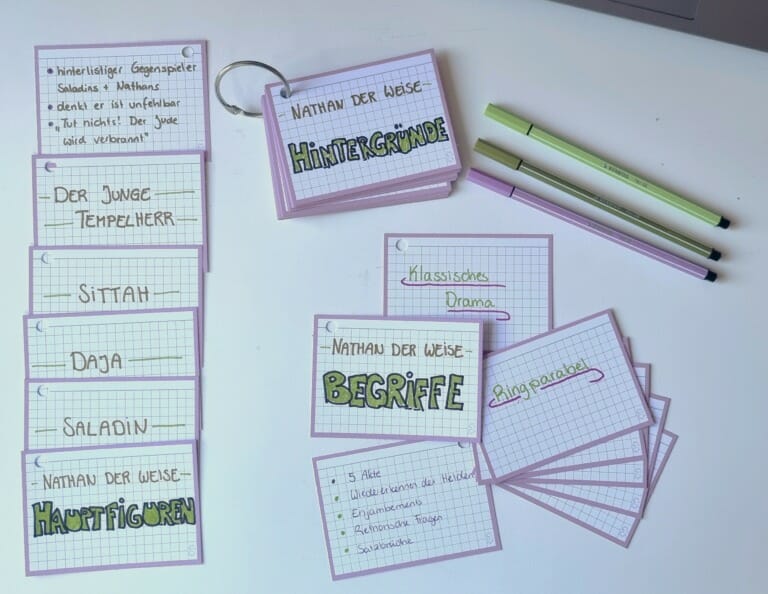 • hinterlistiger Gegenspieler
Saladins + Nathans
• denkt er ist unfehlbar
• „Tut nichts! Der Jude
wird verbrannt"
DER JUNGE
TEMPELHERR
SITTAH
DAJA
SALADIN
NATHAN DER WEISE
HAUPTFIGUREN
NATHAN DER WEISE
HINTERGRÜNDE
Klassisches
Drama
NATHAN DER WEISE
BEGRIFFE
Ringparabel
• 5 Akte
• Wiedererkennen der Helden
• Enjambements
• Rethorische Fragen
• Satzbrüche